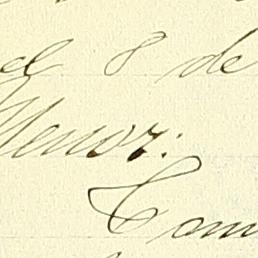 el 8 de
Menor:
Com